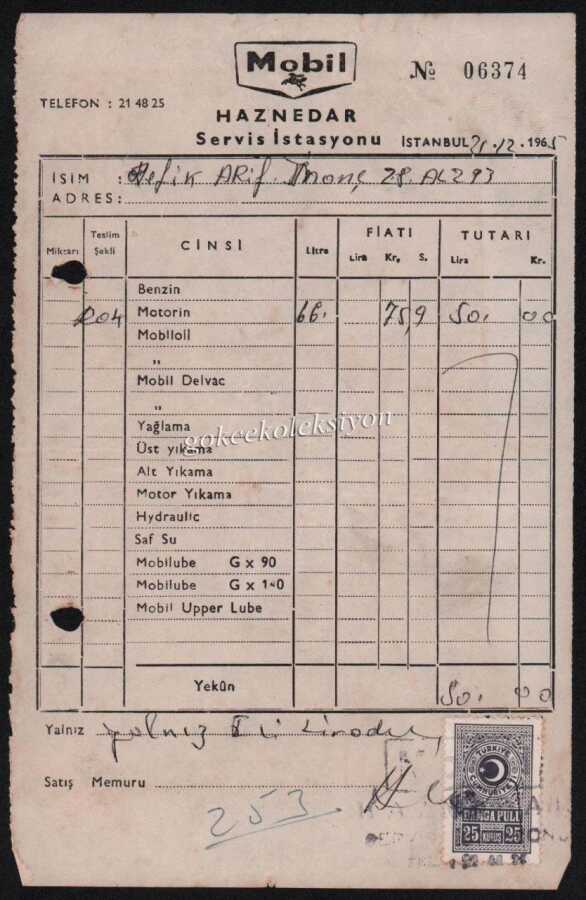 Mobil
№ 06374
TELEFON : 21 48 25
HAZNEDAR
Servis İstasyonu
İSTANBUL 21.12.1965
İSİM : Refik ARif. 28. AL 293
ADRES:
Miktarı Teslim Şekli CİNSİ Litre FİATI Lira Kr. S. TUTARI Lira Kr.
Benzin
204 Motorin 66. 75,9 50. 00
Mobiloil
"
Mobil Delvac
"
Yağlama
gokcekoleksiyon
Üst yıkama
Alt Yıkama
Motor Yıkama
Hydraulic
Saf Su
Mobilube G x 90
Mobilube G x 140
Mobil Upper Lube
Yekûn 50. 00
Yalnız yalnız Elli Liradır
Satış Memuru
253
TÜRKİYE CUMHURİYETİ
DAMGA PULU
25 KURUŞ 25